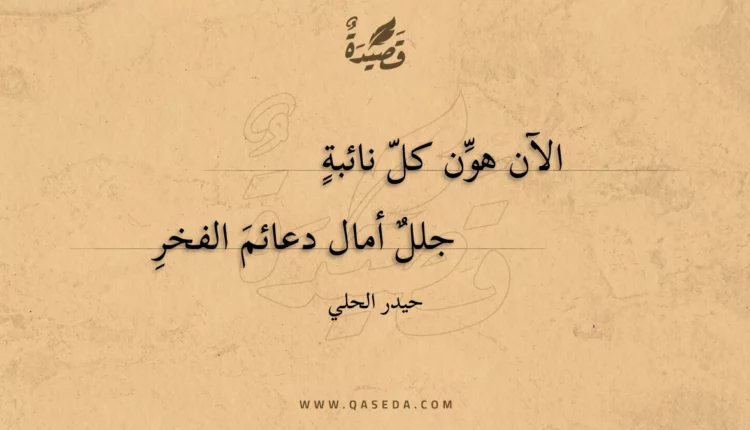 قَصِيْدَةٌ
الآن هوِّن كلّ نائبةٍ
جللٌ أمال دعائمَ الفخرِ
حيدر الحلي
WWW.QASEDA.COM